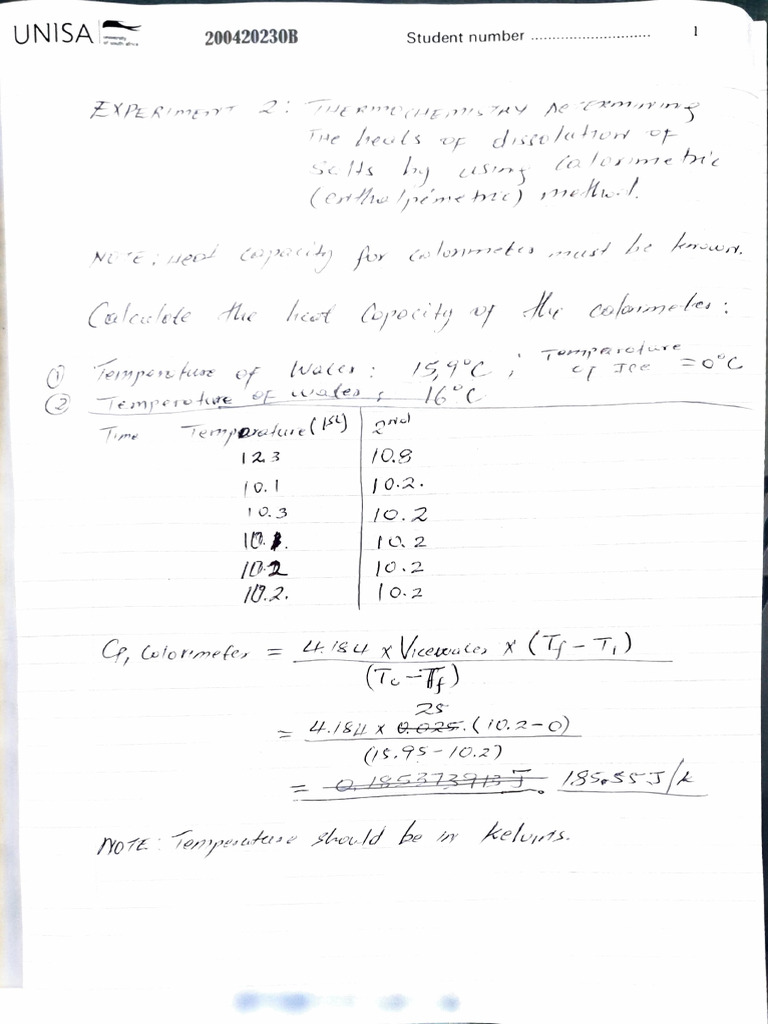 UNISA university of south africa 200420230B Student number ........................... 1
EXPERIMENT 2: THERMOCHEMISTRY Determining
The heats of dissolution of
Salts by using Calorimetric
(enthalpimetric) method.
NOTE: Heat capacity for calorimeter must be known.
Calculate the heat capacity of the calorimeter:
① Temperature of Water: 15,9°C ; Temperature of Ice = 0°C
② Temperature of water: 16°C
Time Temperature (1st) 2nd
12.3 10.8
10.1 10.2.
10.3 10.2
10.1. 10.2
10.2 10.2
10.2. 10.2
Cp, Calorimeter = 4.184 x Vicewater x (Tf - Ti)
(Tc - Tf)
25
= 4.184 x 0.025. (10.2-0)
(15.95-10.2)
= 0.185373913 J. 185.55 J/k
NOTE: Temperature should be in kelvins.